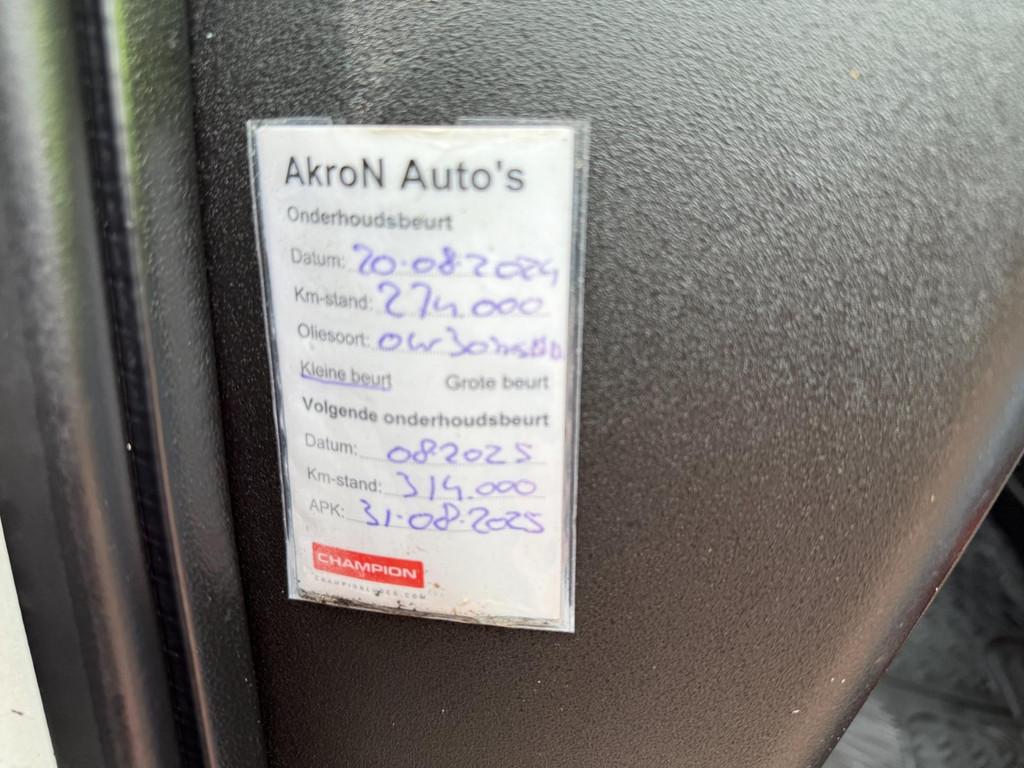 AkroN Auto's
Onderhoudsbeurt
Datum: 20.08.2024
Km-stand: 274.000
Oliesoort: 0W30
Kleine beurt Grote beurt
Volgende onderhoudsbeurt
Datum: 082025
Km-stand: 314.000
APK: 31.08.2025
CHAMPION
CHAMPIONLUBES.COM